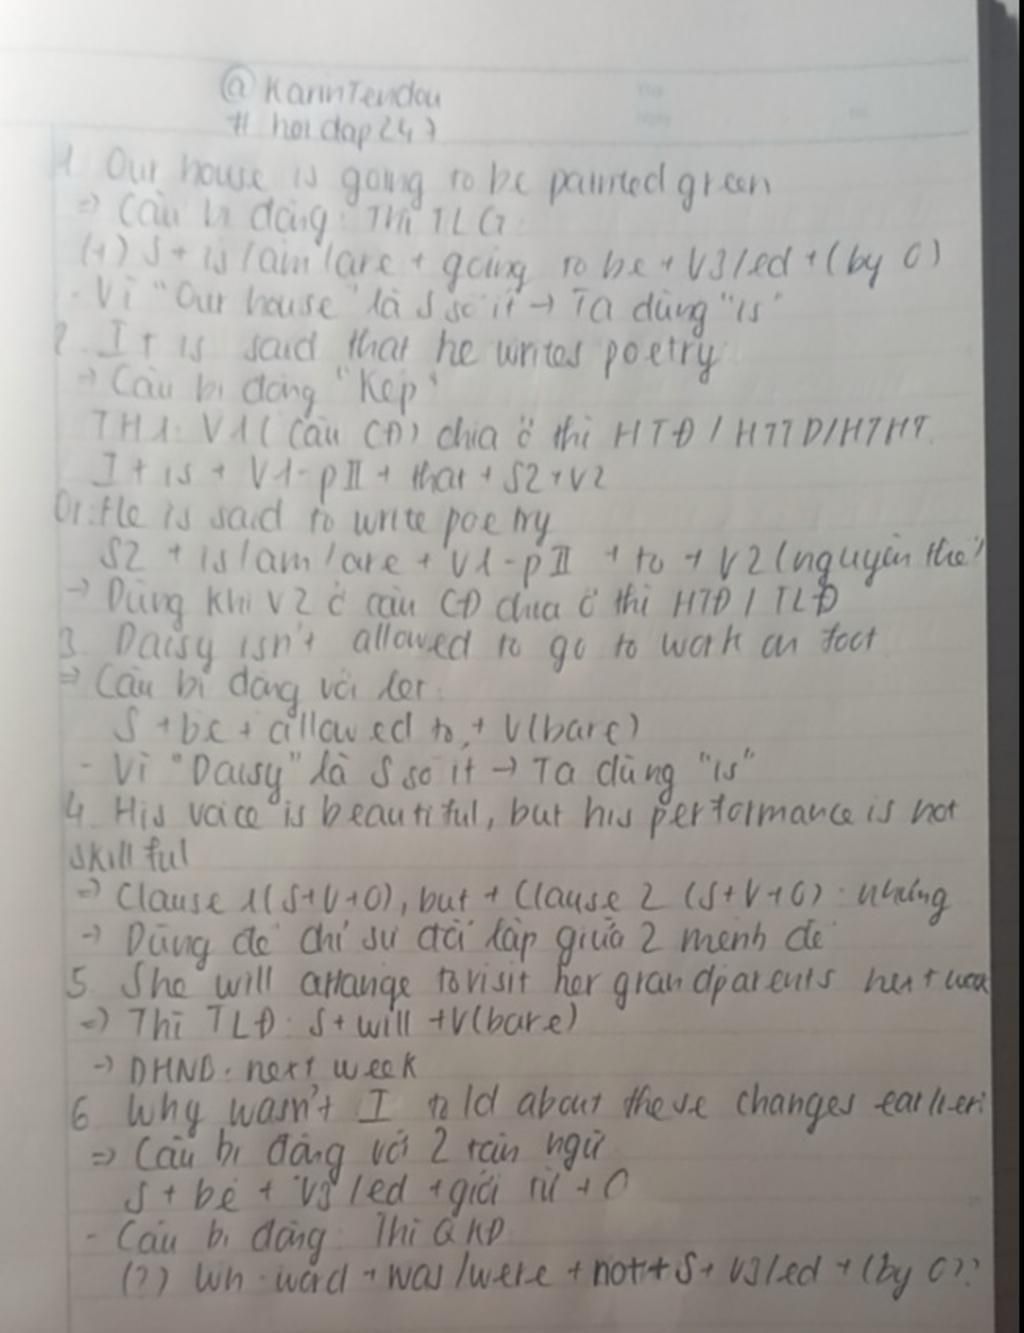 @ KarinTendou
# hoidap247
1. Our house is going to be painted green
=> Câu bị động: Thì TLG:
(+) S + is/am/are + going to be + V3/ed + (by O)
- Vì "Our house" là S số ít -> Ta dùng "is"
2. It is said that he writes poetry
-> Câu bị động "Kép"
TH1: V1 (câu CĐ) chia ở thì HTĐ/HTTD/HTHT.
It is + V1-pII + that + S2 + V2
Or: He is said to write poetry
S2 + is/am/are + V1-pII + to + V2 (nguyên thể)
-> Dùng khi V2 ở câu CĐ chia ở thì HTĐ/TLĐ
3. Daisy isn't allowed to go to work on foot
=> Câu bị động với let:
S + be + allowed to + V(bare)
- Vì "Daisy" là S số ít -> Ta dùng "is"
4. His voice is beautiful, but his performance is not
skillful
=> Clause 1 (S+V+O), but + Clause 2 (S+V+O): nhưng
-> Dùng để chỉ sự đối lập giữa 2 mệnh đề
5. She will arrange to visit her grandparents next week
=> Thì TLĐ: S + will + V(bare)
-> DHNB: next week
6. Why wasn't I told about these changes earlier?
=> Câu bị động với 2 tân ngữ
S + be + V3/ed + giới từ + O
- Câu bị động: Thì QKĐ
(?) Wh-word + was/were + not + S + V3/ed + (by O)?